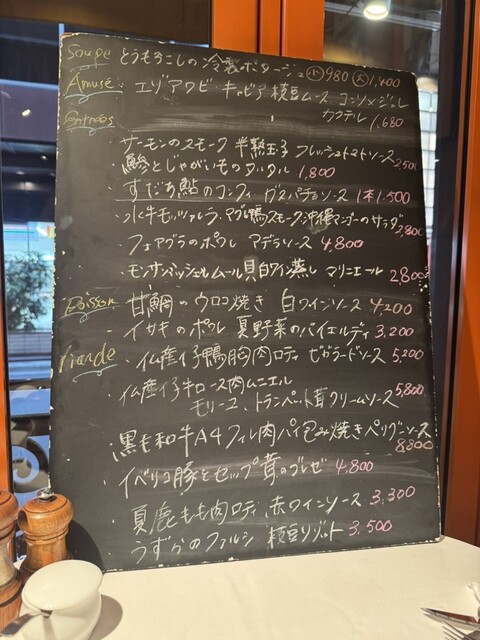 Soupe とうもろこしの冷製ポタージュ 小 980 大 1,400
Amuse ・エゾアワビ・キャビア 枝豆ムース コンソメジュレ
カクテル 1,680
Entrées
・サーモンのスモーク 半熟玉子 フレッシュトマトソース 2,500
・鯵とじゃがいものタルタル 1,800
・すだち鮎のコンフィ ガスパチョソース 1本1,500
・水牛モッツァレラ・マグレ鴨スモーク 沖縄マンゴーのサラダ 2,800
・フォアグラのポワレ マデラソース 4,800
・モンサンミッシェルムール貝 白ワイン蒸し マリニエール 2,800
Poisson 甘鯛のウロコ焼き 白ワインソース 4,200
・イサキのポワレ 夏野菜のバイエルディ 3,200
Viande ・仏産仔鴨胸肉ロティ ビガラードソース 5,200
・仏産仔牛ロース肉ムニエル
モリーユ、トランペット茸クリームソース 5,800
・黒毛和牛A4フィレ肉パイ包み焼きペリグーソース
8,800
・イベリコ豚とセップ茸のブレゼ 4,800
・夏鹿もも肉ロティ 赤ワインソース 3,300
・うずらのファルシ 枝豆リゾット 3,500